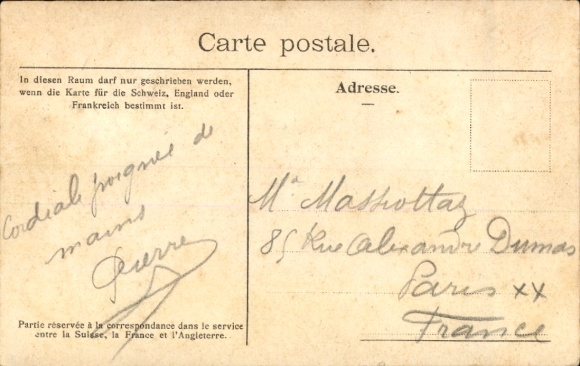 Carte postale.
In diesen Raum darf nur geschrieben werden,
wenn die Karte für die Schweiz, England oder
Frankreich bestimmt ist.
Adresse.
Cordiale poignée de
mains
Pierre
Mr
85 Rue Alexandre Dumas
Paris XX
France
Partie réservée à la correspondance dans le service
entre la Suisse, la France et l'Angleterre.